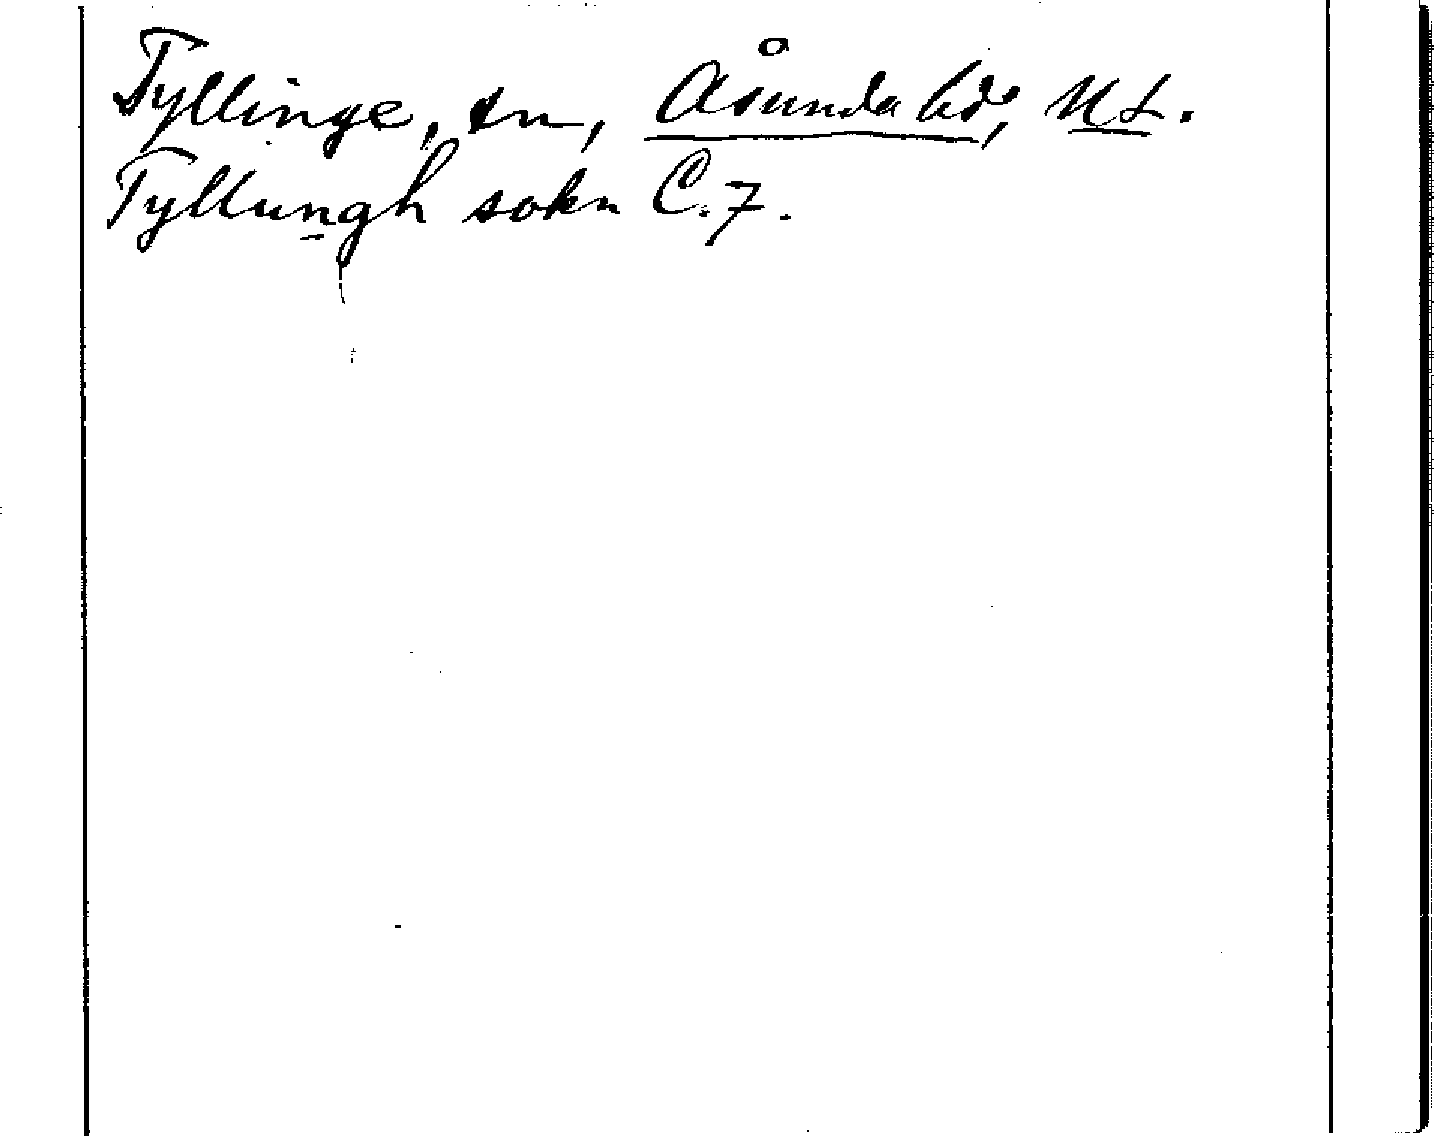 Tyllinge, sn, Åsunda hd, Upl.
Tyllungh sokn C. 7.